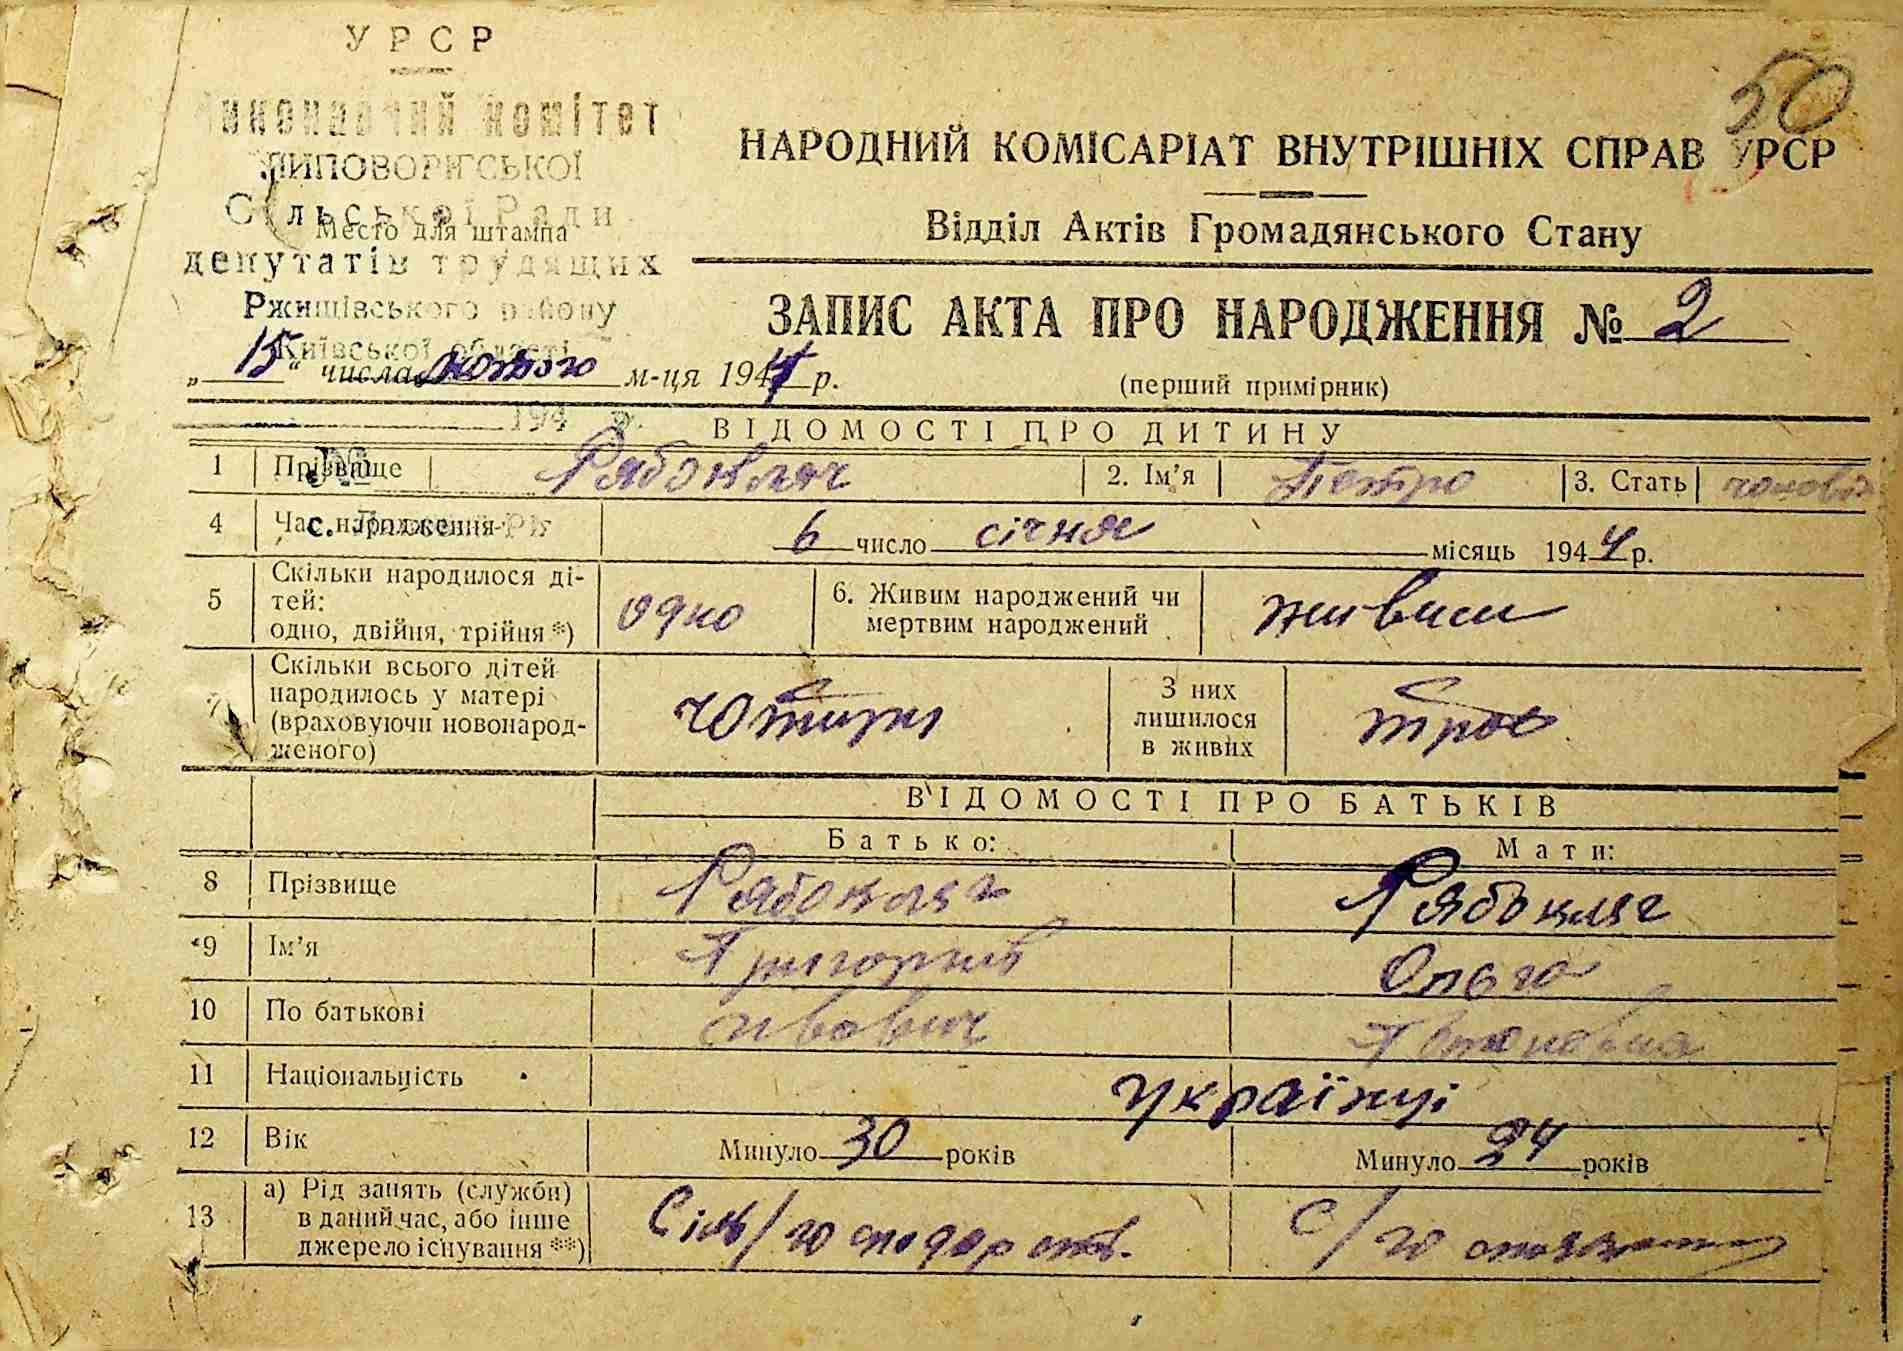 УРСР
Виконавчий комітет
ЛИПОВОРІГСЬКОЇ
Сільської Ради
Место для штампа
депутатів трудящих
Ржищівського району
Київської області
50
НАРОДНИЙ КОМІСАРІАТ ВНУТРІШНІХ СПРАВ УРСР
Відділ Актів Громадянського Стану
ЗАПИС АКТА ПРО НАРОДЖЕННЯ № 2
„15“ числа лютого м-ця 1944 р.
(перший примірник)
194 р.
ВІДОМОСТІ ПРО ДИТИНУ
№
1 Прізвище Рябокляч 2. Ім'я Петро 3. Стать чоловіч
4 Час народження 6 число січня місяць 1944 р.
5 Скільки народилося ді-
тей:
одно, двійня, трійня *) одно
6. Живим народжений чи
мертвим народжений живим
7 Скільки всього дітей
народилось у матері
(враховуючи новонарод-
женого) чотири
З них
лишилося
в живих троє
ВІДОМОСТІ ПРО БАТЬКІВ
Батько: Мати:
8 Прізвище Рябокляч Рябокляч
9 Ім'я Григорий Ольга
10 По батькові Ивович
11 Національність українці
12 Вік Минуло 30 років Минуло 24 років
13 а) Рід занять (служби)
в даний час, або інше
джерело існування **) Сіль/господарств. С/господарств